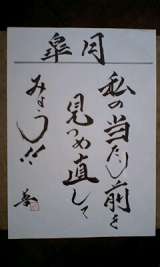 皐月
私の当たり前を
見つめ直して
みよう!!